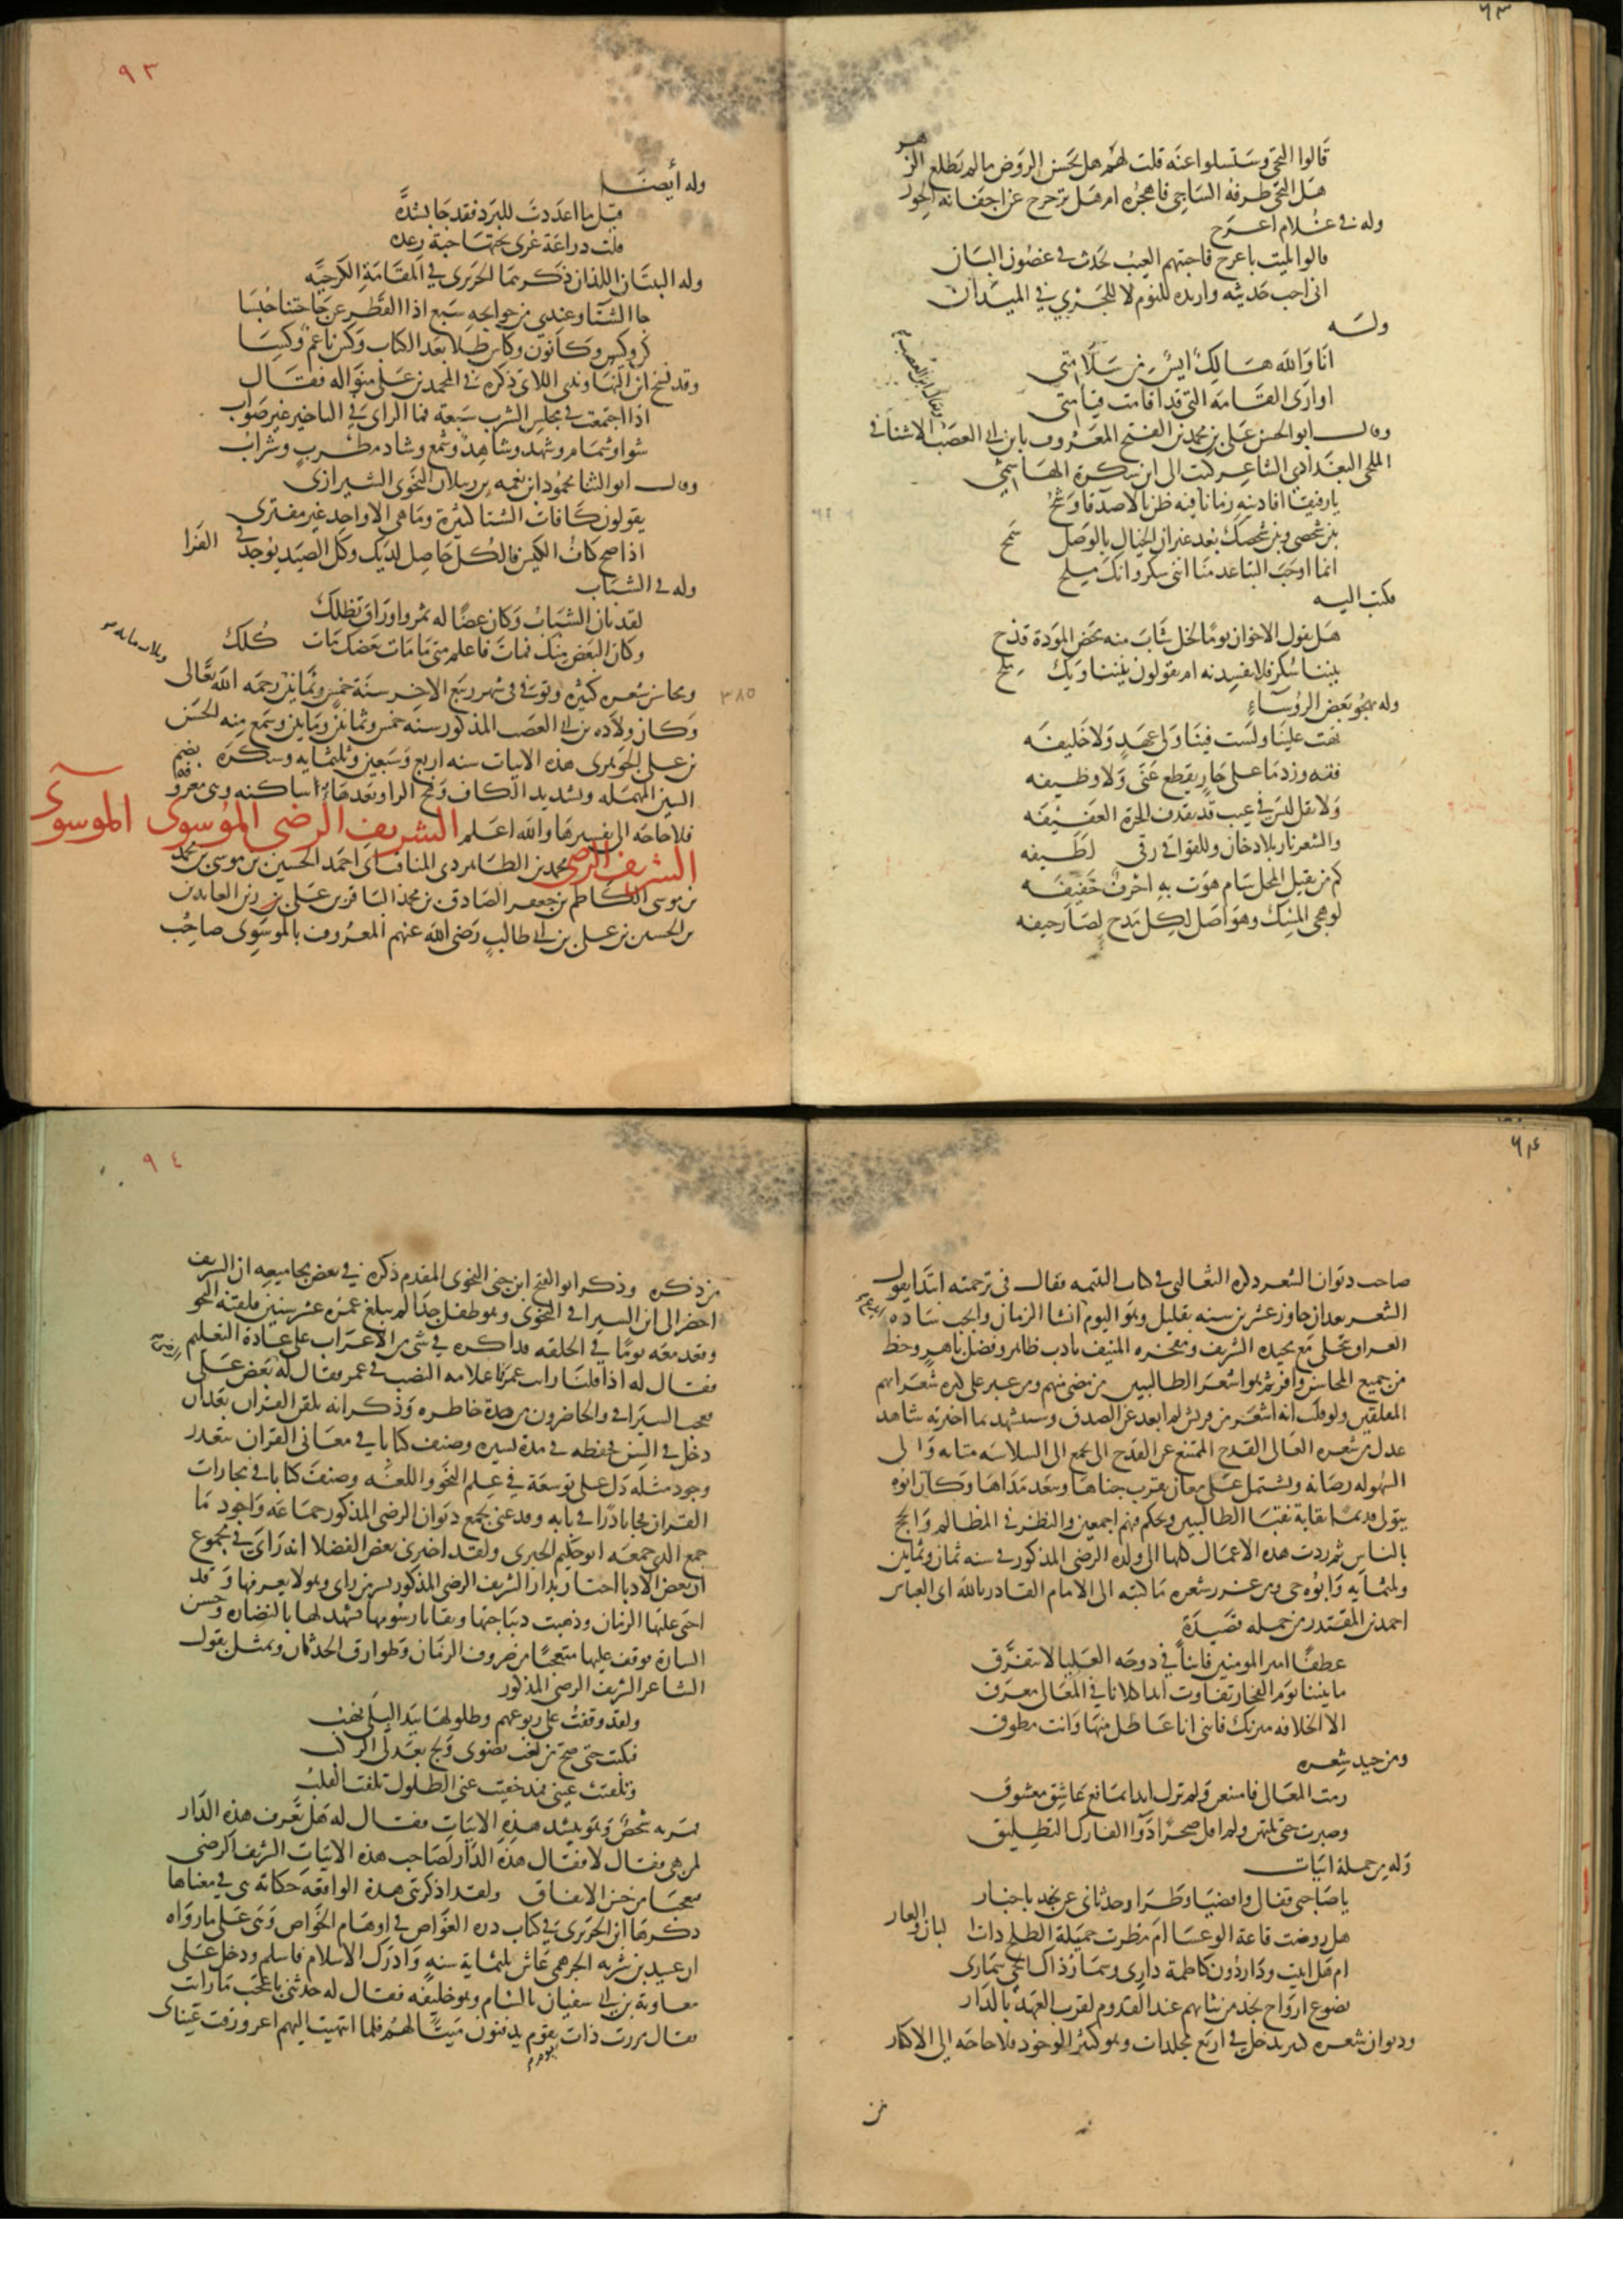 ٦٣
قالوا التحى وستسلوا عنه قلت لهم هل يحسن الروض ما لم يطلع الزهر
هل التحى طرفه الساجي فاهجره ام هل تزحزح عن اجفانه الحور
وله في غلام اعرج
قالوا بليت باعرج فاجبتهم العيب يحدث في غصون البان
اني احب حديثه واريده للنوم لا للجري في الميدان
وله
انا والله هالك ايس من سلامتي
او ارى القامة التي قد اقامت قيامتي
وقال ابو الحسن علي بن محمد بن الفتح المعروف بابن ابي العصب الاشناني
الملحي البغدادي الشاعر كتب الى ابن سكرة الهاشمي
يا صديقا افادنيه زمان فيه ظن بالاصدقا وشح
بين شخصي وبين شخصك بعد غير ان الخيال بالوصل سمح
انما اوجب التباعد منا انني سكر وانك ملح
فكتب اليه
هل يقول الاخوان يوما لخل شاب منه محض المودة قدح
بيننا سكر فلا تفسدنه ام يقولون بيننا ويك ملح
وله يهجو بعض الرؤساء
تهت علينا ولست فينا ولي عهد ولا خليفه
فته وزد ما علي جار يقطع عني ولا وظيفه
ولا تقل ليس في عيب قد تقذف الحرة العفيفه
والشعر نار بلا دخان وللقوافي رقى لطيفه
كم من ثقيل المحل سام هوت به احرف خفيفه
لو هجي المسك وهو اصل لكل مدح لصار جيفه
٩٣
وله أيضا
قيل ما اعددت للبرد فقد جا بشده
قلت دراعة عري تحتها جبة رعده
وله البيتان اللذان ذكرهما الحريري في المقامة الكرجيه
جا الشتا وعندي من حوايجه سبع اذا القطر عن حاجتنا حبسا
كن وكيس وكانون وكاس طلا بعد الكباب وكس ناعم وكسا
وقد نسخ ابن التهاوندي اللاتي ذكره في المحمدين على منواله فقال
اذا اجتمعت في مجلس الشرب سبعة فما الراي في التاخير غير صواب
شوا وشمام وشهد وشاهد وشمع وشاد مطرب وشراب
وقال ابو الثنا محمود ابن نعمه بن رسلان النحوي الشيرازي
يقولون كافات الشتا كثيرة وما هي الا واحد غير مفترى
اذا صح كاف الكيس فالكل حاصل لديك وكل الصيد يوجد في الفرا
وله في الشباب
لقد بان الشباب وكان غضا له ثمر واوراق تظلك
وكان البعض منك فمات فاعلم متى ما مات بعضك مات كلك
ومحاسن شعره كثيره وتوفي في شهر ربيع الاخر سنة خمس وثمانين رحمه الله تعالى
٣٨٥
وكان ولاده بن ابي العصب المذكور سنه خمس وثمانين وماتين وسمع منه الحسن
بن علي الجوهري هذه الابيات سنه اربع وسبعين وثلثمايه وسكره بضم
السين المهمله وتشديد الكاف وفتح الرا وبعدها هاء ساكنه وهي معروفه
فلا حاجه الى تفسيرها والله اعلم الشريف الرضي الموسوي الموسوي
الشريف الرضي محمد بن الطاهر ذي المناقب ابي احمد الحسين بن موسى بن محمد
بن موسى الكاظم بن جعفر الصادق بن محمد الباقر بن علي بن زين العابدين
بن الحسين بن علي بن ابي طالب رضي الله عنهم المعروف بالموسوي صاحب
٦٤
صاحب ديوان الشعر ذكره الثعالبي في كتاب اليتيمه فقال في ترجمته ابتدا يقول
الشعر بعد ان جاوز عشر بن سنه بقليل وهو اليوم انشا الزمان وانجب سادة
العراق يتحلى مع محتده الشريف ومفخره المنيف بادب ظاهر وفضل باهر وحظ
من جميع المحاسن وافر ثم هو اشعر الطالبيين من مضى منهم ومن غبر على كثرة شعرائهم
المفلقين ولو قلت انه اشعر من قريش لم ابعد عن الصدق وسيشهد بما اخبر به شاهد
عدل من شعره العالي القدح الممتنع عن القدح الى يجمع الى السلاسه متانه والى
السهوله رصانه ويشتمل على معان يقرب جناها ويبعد مداها وكان ابوه
يتولى قديما نقابة نقبا الطالبيين ويحكم فيهم اجمعين والنظر في المظالم والحج
بالناس ثم ردت هذه الاعمال كلها الى ولده الرضي المذكور في سنه ثمان وثمانين
وثلثمايه وابوه حي ومن غرر شعره ما كتبه الى الامام القادر بالله ابي العباس
احمد بن المقتدر من جمله قصيدة
عطفا امير المومنين فاننا في دوحة العليا لا نتفرق
ما بيننا يوم الفخار تفاوت ابدا كلانا في المعالي معرق
الا الخلافه ميزتك فانني انا عاطل منها وانت مطوق
ومن جيد شعره
رمت المعالي فامتنعن ولم تزل ابدا تمانع عاشق معشوق
وصبرت حتى نلتهن ولم اقل ضجرا دوا الفارك التطليق
وله من جملة ابيات
يا صاحبي قفا لي واقضيا وطرا وحدثاني عن نجد باخبار
هل روضت قاعة الوعسا ام مطرت خميلة الطلح ذات البان والغار
ام هل ابيت ودار دون كاظمة داري وسمار ذاك الحي سماري
تضوع ارواح نجد من ثيابهم عند القدوم لقرب العهد بالدار
وديوان شعره كبير يدخل في اربع مجلدات وهو كثير الوجود فلا حاجه الى الاكثار
من
٩٤
من ذكره وذكر ابو الفتح ابن جني النحوي المقدم ذكره في بعض مجاميعه ان الشريف
احضر الى ابن السيرافي النحوي وهو طفل جدا لم يبلغ عمره عشر سنين فلقنه النحو
وقعد معه يوما في الحلقه فذاكره في شي من الاعراب على عادة التعليم
فقال له اذا قلنا رايت عمر فما علامه النصب في عمر فقال له بغض علي
فعجب السيرافي والحاضرون من حدة خاطره وذكر انه تلقن القران بعد ان
دخل في السن فحفظه في مدة يسيره وصنف كتابا في معاني القران يتعذر
وجود مثله دل على توسعة في علم النحو واللغه وصنف كتابا في مجازات
القران فجا نادرا في بابه وقد عني بجمع ديوان الرضي المذكور جماعة واجود ما
جمع الذي جمعه ابو حكيم الخبري ولقد اخبرني بعض الفضلا انه راى في مجموع
ان بعض الادبا اجتاز بدار الشريف الرضي المذكور بسر من راى وهو لا يعرفها وقد
اخنى عليها الزمان وذهبت ديباجتها وبقايا رسومها تشهد لها بالنضاره وحسن
الشارة فوقف عليها متعجبا من صروف الزمان وطوارق الحدثان وتمثل بقول
الشاعر الشريف الرضي المذكور
ولقد وقفت على ربوعهم وطلولها بيد البلى نهب
فبكيت حتى ضج من لغب نضوي ولج بعذلي الركب
وتلفتت عيني فمذ خفيت عني الطلول تلفت القلب
فمر به شخص وهو ينشد هذه الابيات فقال له هل تعرف هذه الدار
لمن هي فقال لا فقال هذه الدار لصاحب هذه الابيات الشريف الرضي
فعجبا من حسن الاتفاق ولقد اذكرتني هذه الواقعه حكاية هي في معناها
ذكرها ابن الحريري في كتاب دره الغواص في اوهام الخواص وهي على ما رواه
ان عبيد بن شريه الجرهمي عاش ثلثماية سنه وادرك الاسلام فاسلم ودخل على
معاوية بن ابي سفيان بالشام وهو خليفه فقال له حدثني باعجب ما رايت
فقال مررت ذات يوم بقوم يدفنون ميتا لهم فلما انتهيت اليهم اغرورقت عيناي